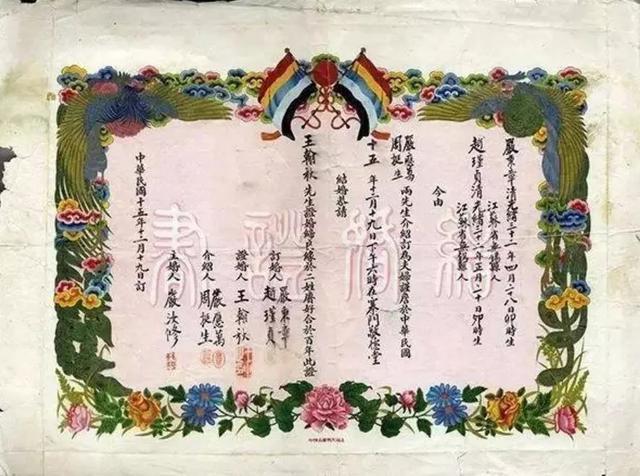 嚴東章清光緒三十二年四月二十八日卯時生
江蘇省無錫縣人
趙瑾貞清光緒三十一年正月二十日卯時生
江蘇省無錫縣人
今由
嚴應萬
周挺生
兩先生介紹訂為夫婦謹詹於中華民國
十五年十二月十九日下午六時在
結婚敬請
王翰秋先生證婚
二姓齊好合於百年此證
訂婚人
嚴東章
趙瑾貞
證婚人 王翰秋
介紹人
嚴應萬
周挺生
主婚人 嚴
中華民國十五年十二月十九日訂
結婚證書